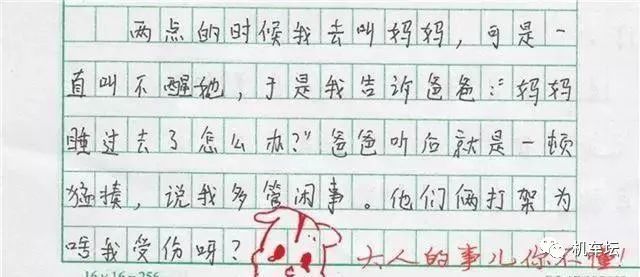 两点的时候我去叫妈妈，可是一
直叫不醒她，于是我告诉爸爸：“妈妈
睡过去了怎么办？”爸爸听后就是一顿
猛揍，说我多管闲事。他们俩打架为
啥我受伤呀？ 大人的事儿你不懂！
机车坛
16×16=256